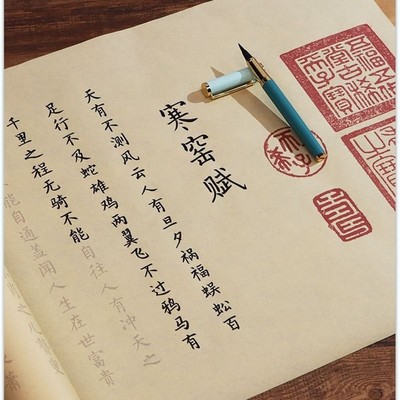 寒窑赋
天有不测风云人有旦夕祸福蜈蚣百
足行不及蛇雄鸡两翼飞不过鸦马有
千里之程无骑不能自往人有冲天之
能自通盖闻人生在世富贵
五福五代堂古稀天子寶
古希天子